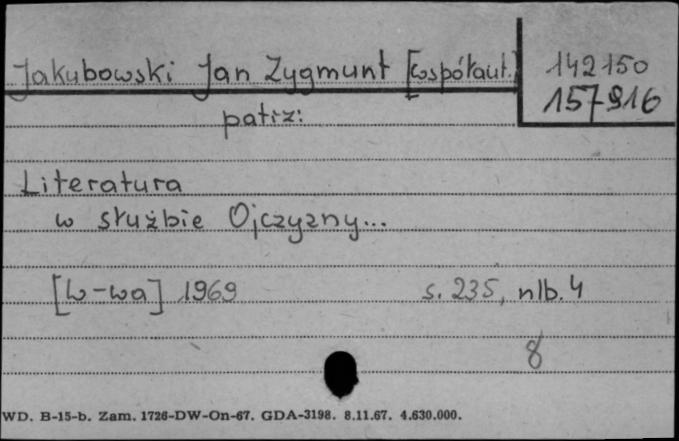 Jakubowski Jan Zygmunt [współaut.] 142150
157916
patrz:
Literatura
w służbie Ojczyzny...
[W-wa] 1969 s. 235, nlb. 4
8
WD. B-15-b. Zam. 1726-DW-On-67. GDA-3198. 8.11.67. 4.630.000.